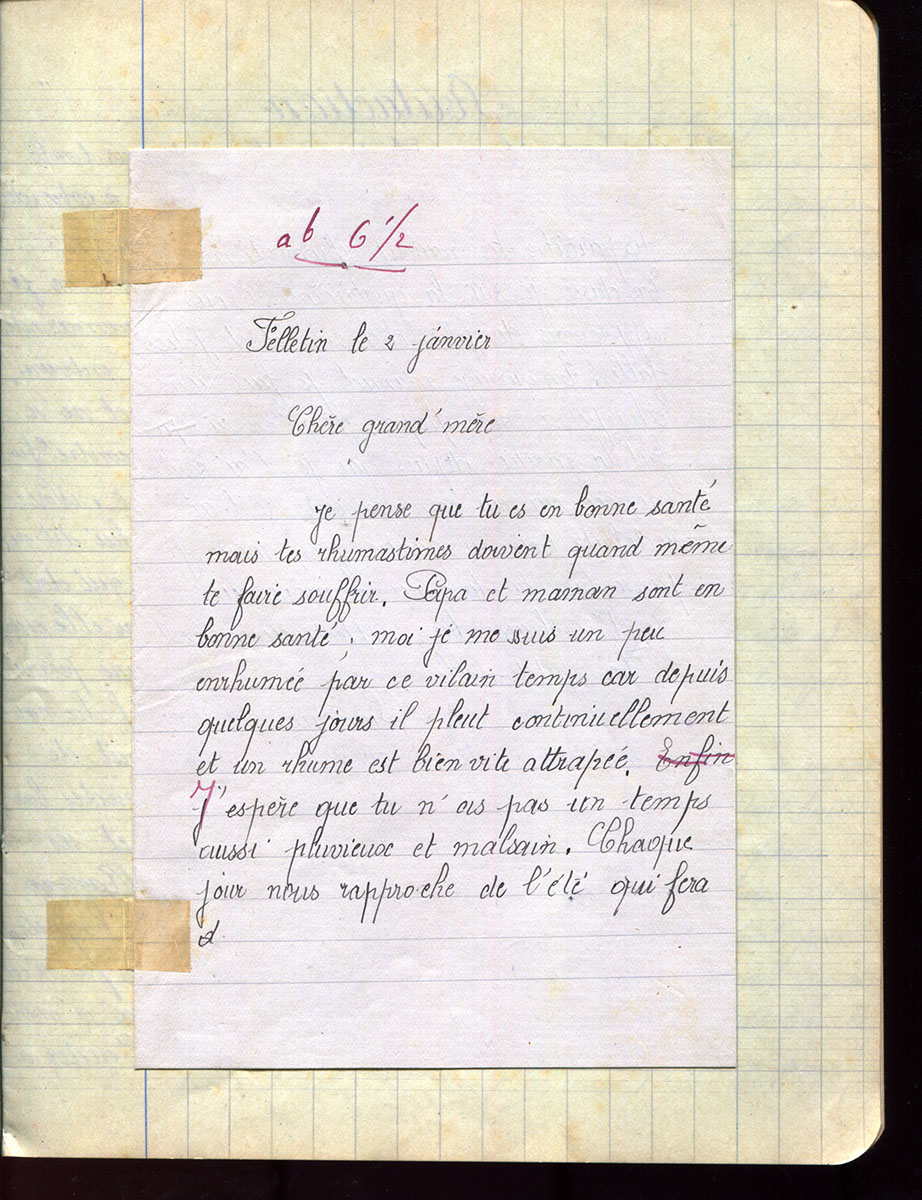 ab 6 1/2
Felletin le 2 janvier
Chère grand'mère
Je pense que tu es en bonne santé
mais tes rhumastimes doivent quand même
te faire souffrir. Papa et maman sont en
bonne santé, moi je me suis un peu
enrhumée par ce vilain temps car depuis
quelques jours il pleut continuellement
et un rhume est bien vite attrapéé. Enfin
J'espère que tu n'as pas un temps
aussi pluvieux et malsain. Chaque
jour nous rapproche de l'été qui fera
d